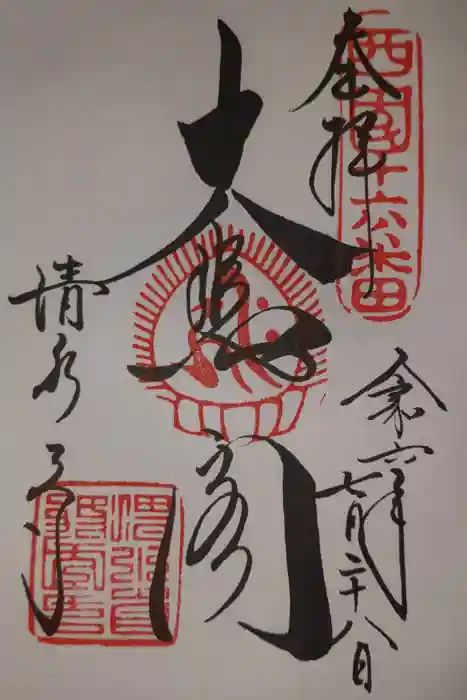 奉拝
西国十六番
令和六年
七月二十八日
大悲閣
清水寺